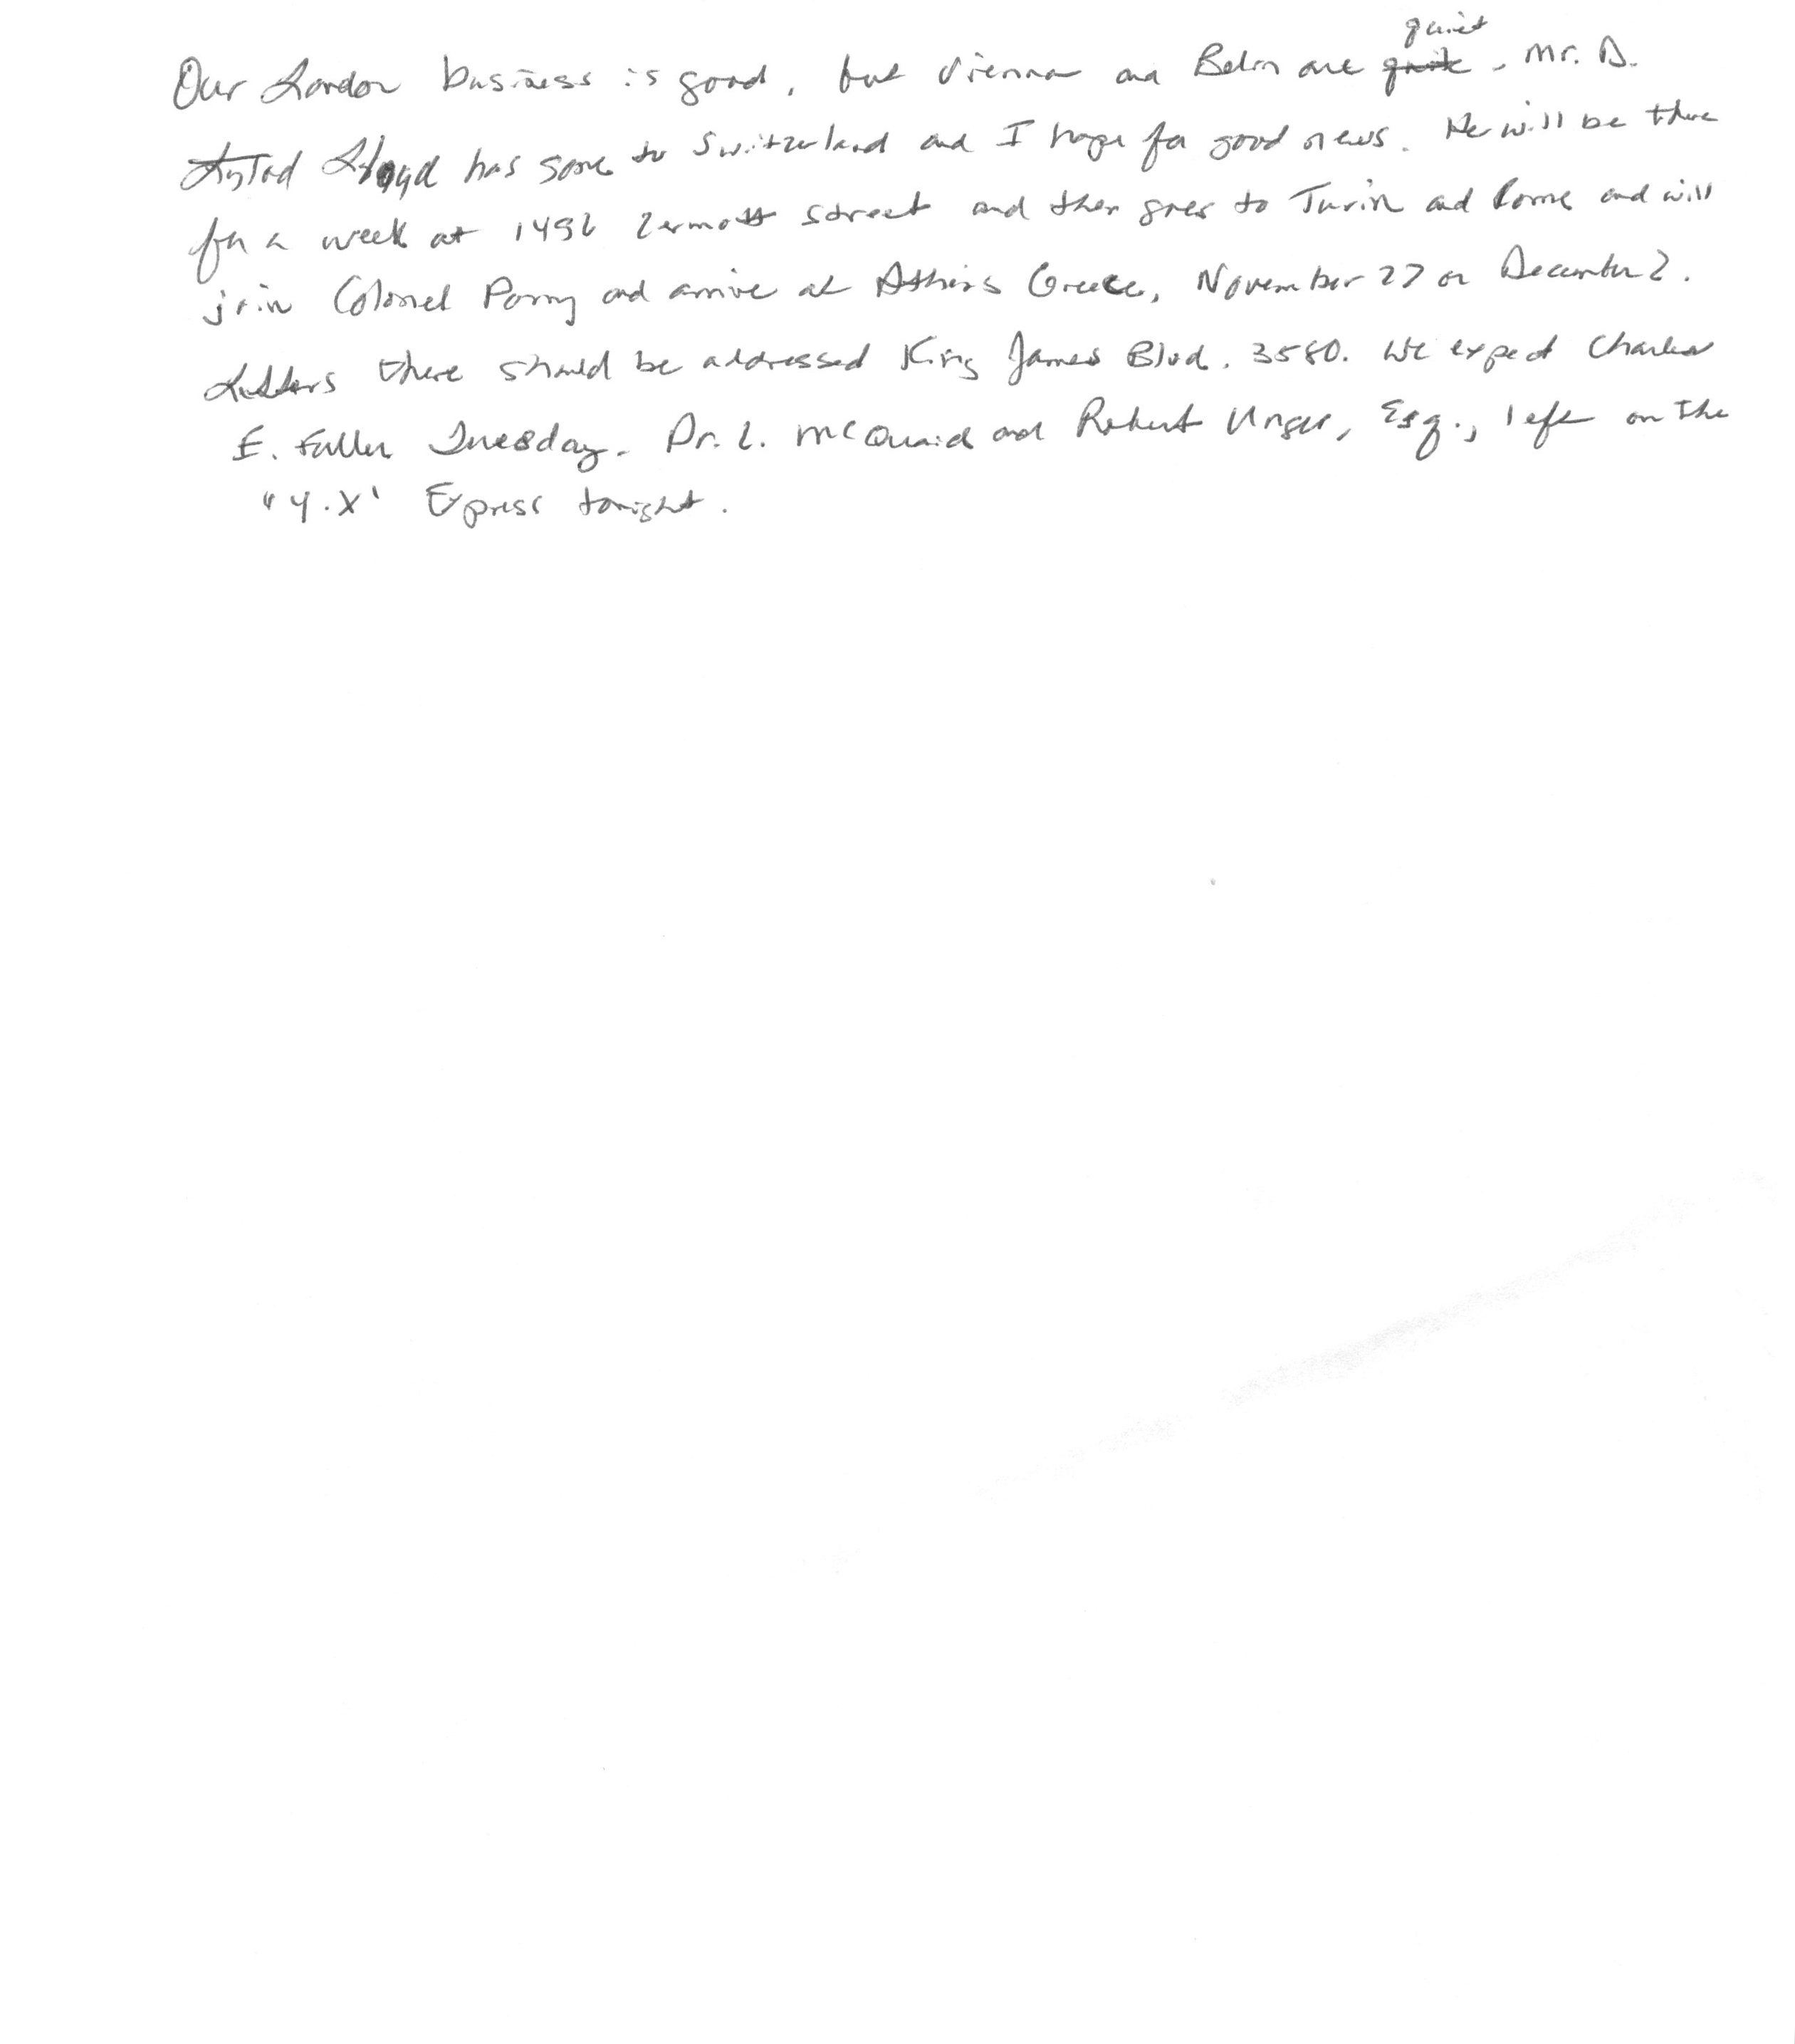 Our London business is good, but Vienna and Berlin are quiet. Mr. D.
Lloyd has gone to Switzerland and I hope for good news. He will be there
for a week at 1496 Zermott street and then goes to Turin and Rome and will
join Colonel Parry and arrive at Athens Greece, November 27 or December 2.
Letters there should be addressed King James Blvd. 3580. We expect Charles
E. Fuller Tuesday. Dr. L. McQuaid and Robert Unger, Esq., left on the
"Y.X' Express tonight.